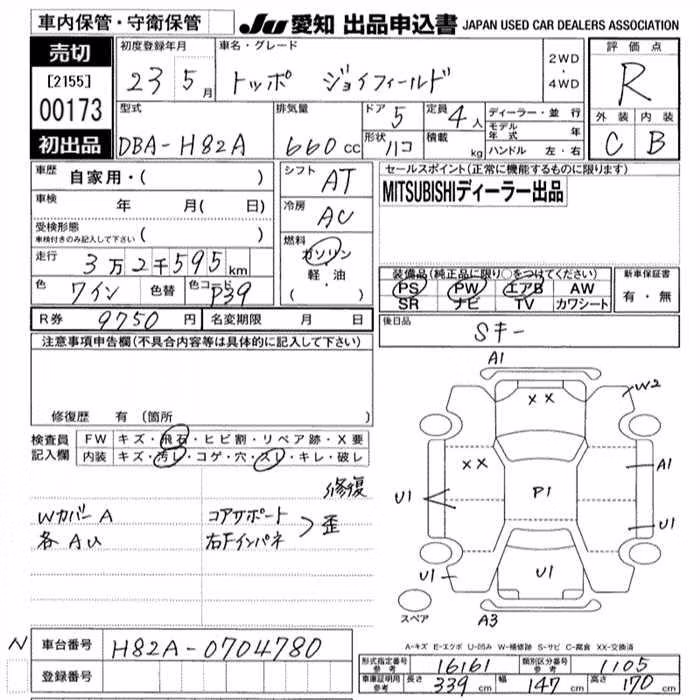 車内保管・守衛保管 Ju 愛知 出品申込書 JAPAN USED CAR DEALERS ASSOCIATION
売切 [2155] 00173 初出品
初度登録年月 車名・グレード 評価点
23 5月 トッポ ジョイフィールド 2WD・4WD R
型式 排気量 ドア 定員 ディーラー・並行 外装 内装
DBA-H82A 660cc 5 4人 モデル年式 年 C B
形状 ハコ 積載 kg ハンドル 左・右
車歴 自家用・( ) シフト AT セールスポイント(正常に機能するものに限ります)
車検 年 月( 日) 冷房 AC MITSUBISHIディーラー出品
受検形態 車検付きのみ記入して下さい ( )
走行 3万2千595km 燃料 ガソリン・軽・油・( )
色 ワイン 色替 色コード P39
装備品(純正品に限り○をつけてください) 新車保証書
PS PW エアB AW 有・無
SR ナビ TV カワシート
R券 9750円 名変期限 月 日 後日品 Sキー
注意事項申告欄(不具合内容等は具体的に記入して下さい)
修復歴 有 (箇所 )
検査員記入欄 FW キズ・飛石・ヒビ割・リペア跡・X要
内装 キズ・汚レ・コゲ・穴・スレ・キレ・破レ
修復
Wカバー A コアサポート
各 AU 右Fインパネ > 歪
A1
XX W2
XX A1
U1 P1
U1
U1 U1
スペア A3
A-キズ E-エクボ U-凹み W-補修跡 S-サビ C-腐食 XX-交換済
N 車台番号 H82A-0704780
登録番号
形式指定番号 参考 16161 類別区分番号 参考 1105
車庫証明用 参考 長さ 339cm 幅 147cm 高さ 170cm